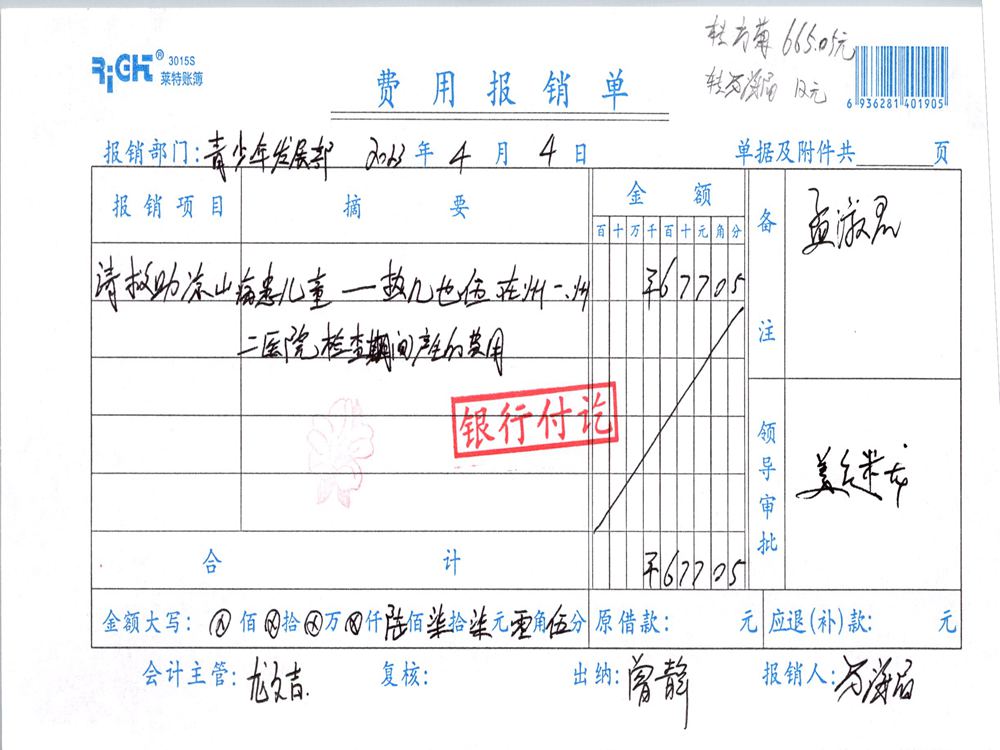 RiGHT® 3015S
莱特账簿
665.05元
12元
6 936281 401905
费用报销单
报销部门:青少年发展部 2023年4月4日 单据及附件共 页
报销项目 摘要 金额 备注
百十万千百十元角分
请救助凉山病患儿童一救几也伍在州一、州 ¥67705
二医院检查期间产生的费用
银行付讫
领导审批
合计 ¥67705
金额大写:ⓧ佰ⓧ拾ⓧ万ⓧ仟陆佰柒拾柒元零角伍分 原借款: 元 应退(补)款: 元
会计主管:龙文吉 复核: 出纳:曾静 报销人: